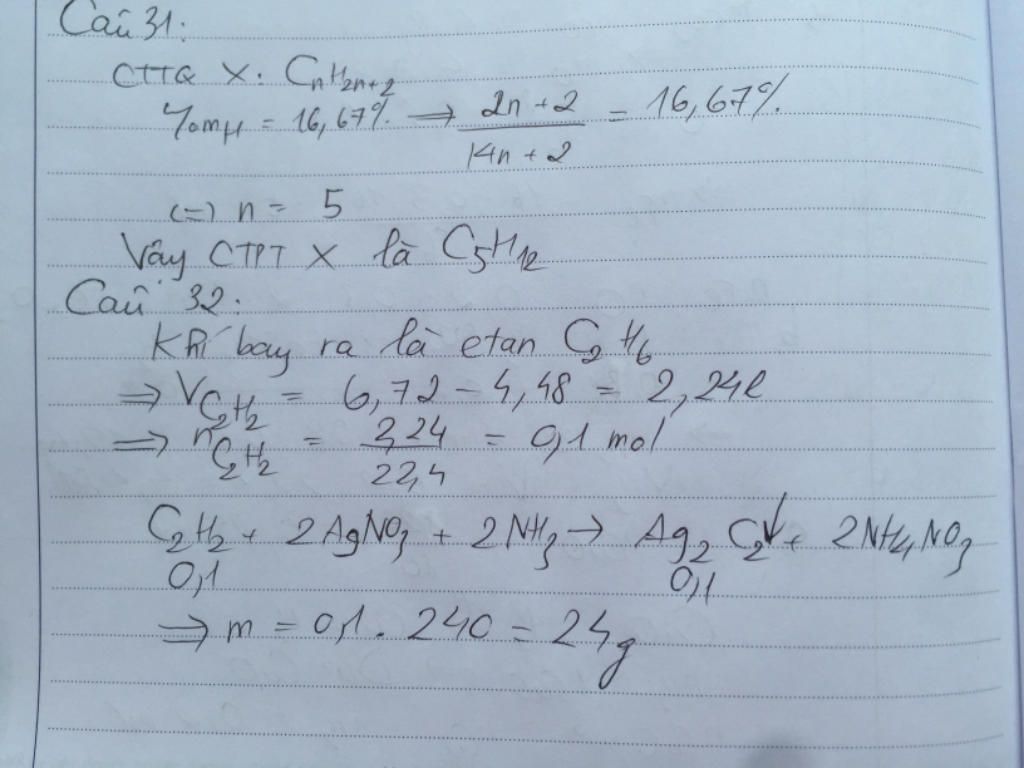 Câu 31:
CTTQ X: CnH2n+2
%mH = 16,67% => 2n+2 / 14n+2 = 16,67%
(=) n = 5
Vậy CTPT X là C5H12
Câu 32:
Khí bay ra là etan C2H6
=> VC2H2 = 6,72 - 4,48 = 2,24l
=> nC2H2 = 2,24 / 22,4 = 0,1 mol
C2H2 + 2AgNO3 + 2NH3 → Ag2C2↓ + 2NH4NO3
0,1 0,1
=> m = 0,1 . 240 = 24g